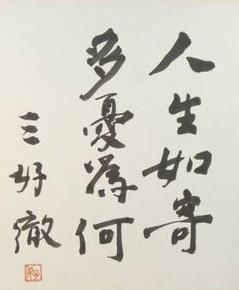 人生如寄
多憂為何
三好徹